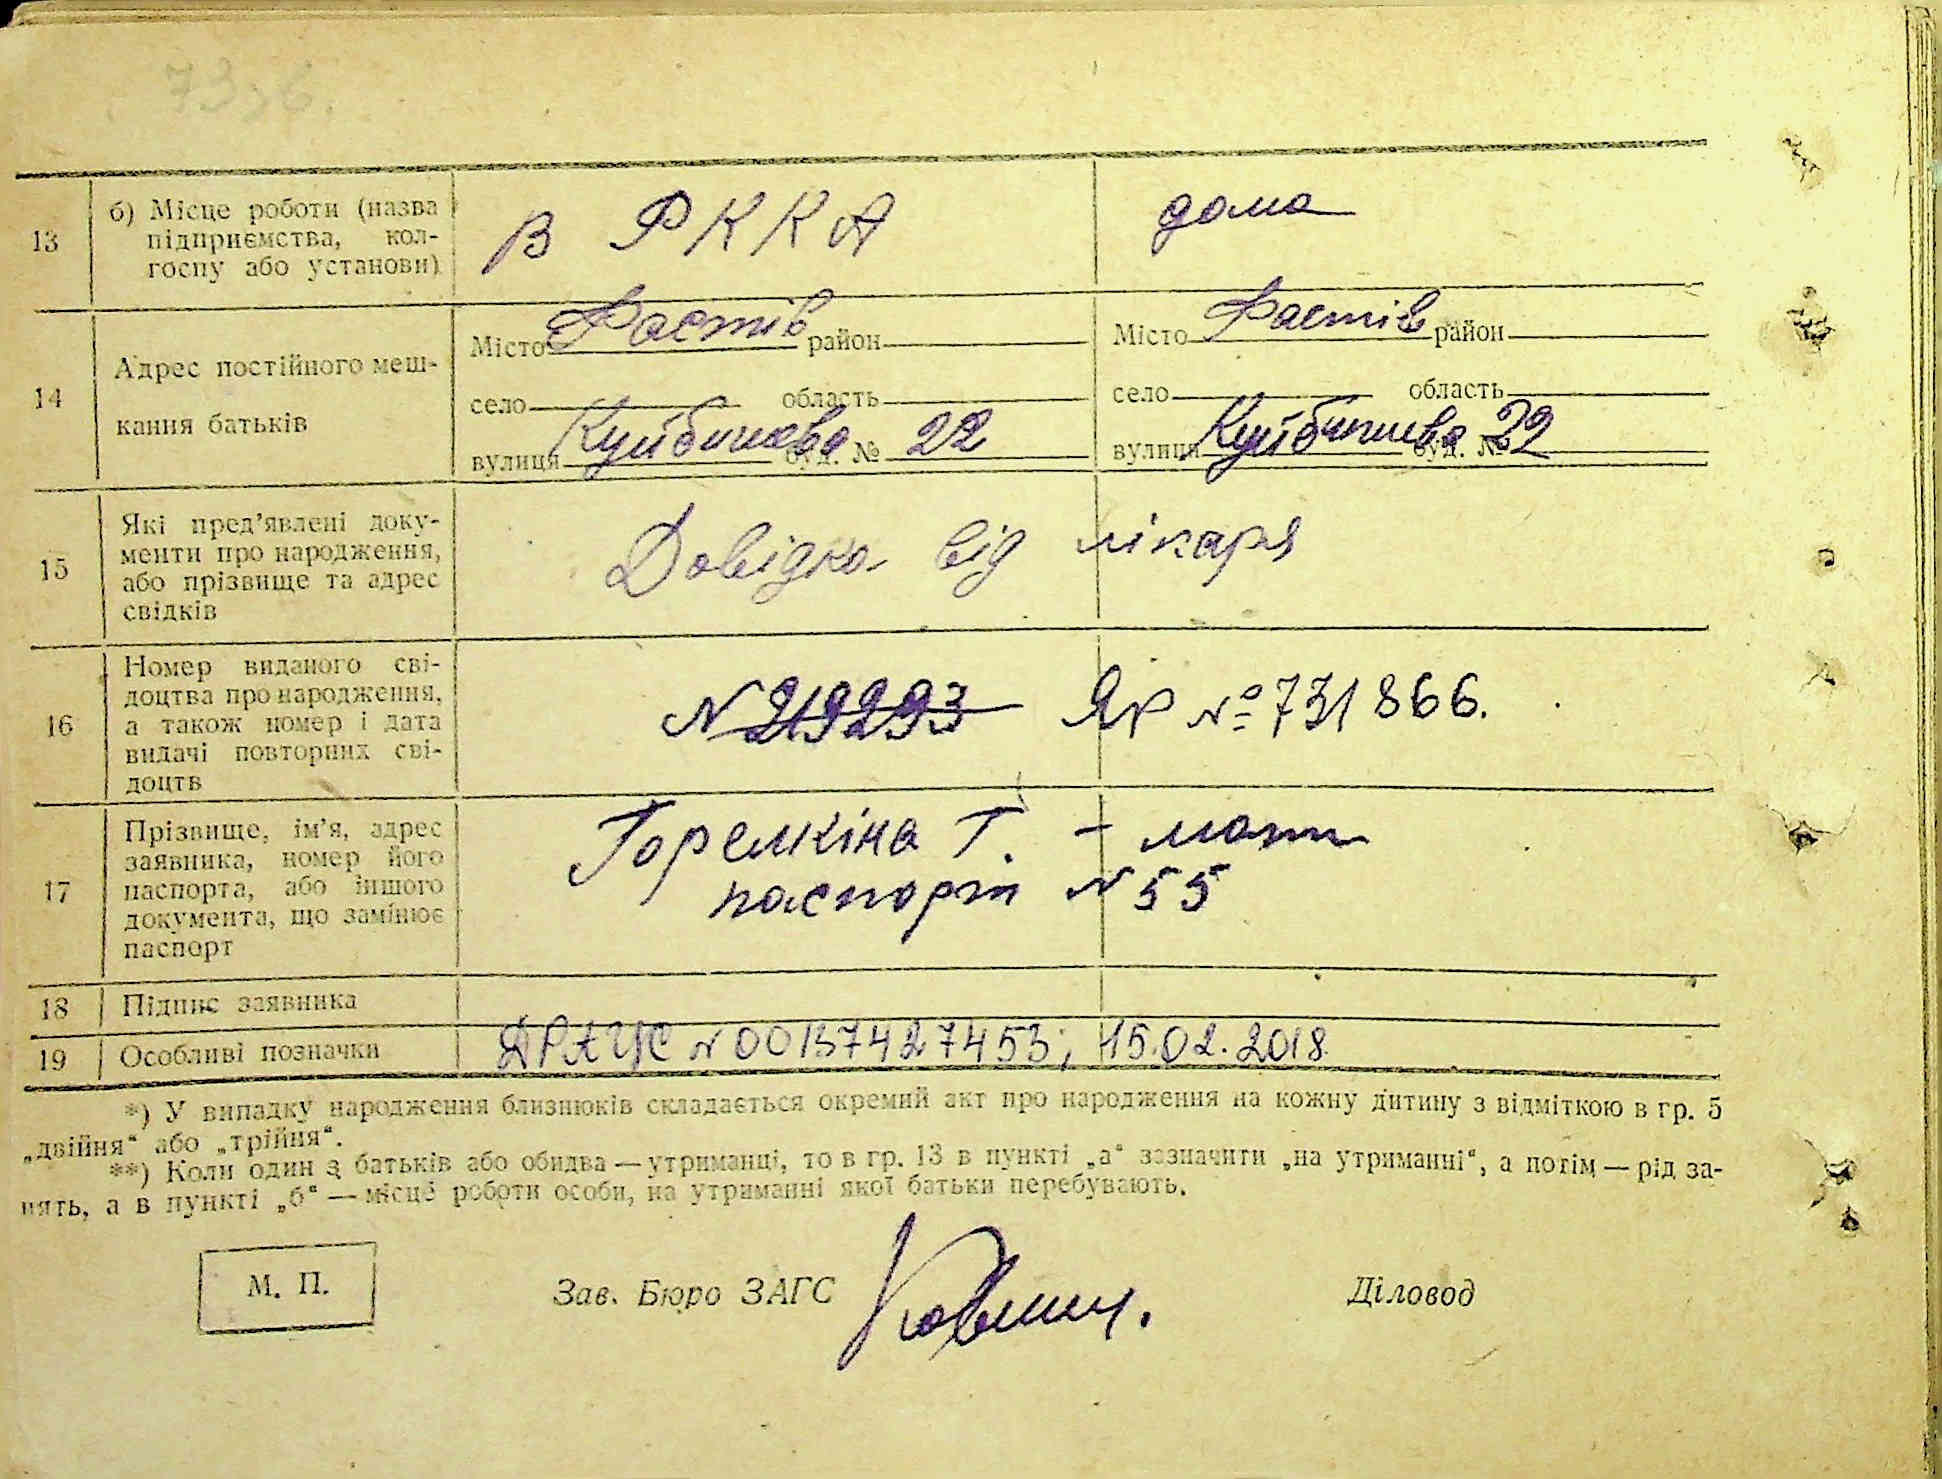 73 зв.
13 б) Місце роботи (назва
підприємства, кол-
госпу або установи)
В РККА дома
14 Адрес постійного меш-
кання батьків
Місто Фастів район Місто Фастів район
село область село область
вулиця Куйбишева буд. № 22 вулиця Куйбишева буд. № 22
15 Які пред’явлені доку-
менти про народження,
або прізвище та адрес
свідків
Довідка від лікаря
16 Номер виданого сві-
доцтва про народження,
а також номер і дата
видачі повторних сві-
доцтв
N 219293 ЯР № 731866.
17 Прізвище, ім’я, адрес
заявника, номер його
паспорта, або іншого
документа, що замінює
паспорт
Горемкіна Т. – мати
паспорт N 55
18 Підпис заявника
19 Особливі позначки
ДРАЦС N 00137427453; 15.02.2018.
*) У випадку народження близнюків складається окремий акт про народження на кожну дитину з відміткою в гр. 5
„двійня“ або „трійня“.
**) Коли один з батьків або обидва — утриманці, то в гр. 13 в пункті „а“ зазначити „на утриманні“, а потім — рід за-
нять, а в пункті „б“ — місце роботи особи, на утриманні якої батьки перебувають.
М. П. Зав. Бюро ЗАГС Діловод